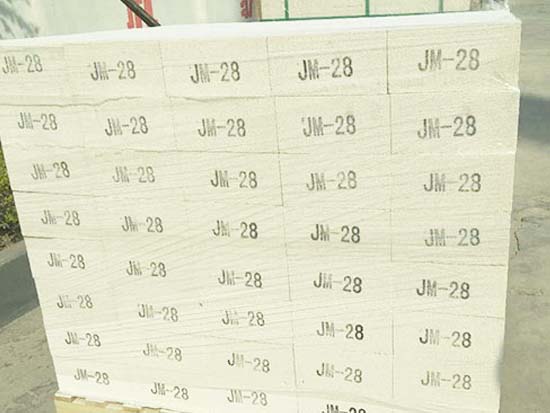 JM-28 JM-28 JM-28 JM-28 JM-28
JM-28 JM-28 JM-28 JM-28 JM-28
JM-28 JM-28 JM-28 JM-28 JM-28
JM-28 JM-28 JM-28 JM-28 JM-28
JM-28 JM-28 JM-28 JM-28 JM-28
JM-28 JM-28 JM-28 JM-28 JM-28
JM-28 JM-28 JM-28 JM-28 JM-28
JM-28 JM-28 JM-28 JM-28